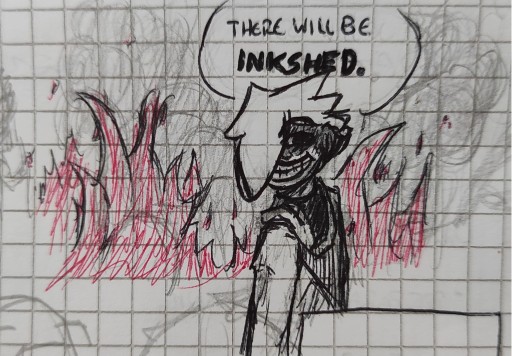 THERE WILL BE
INKSHED.